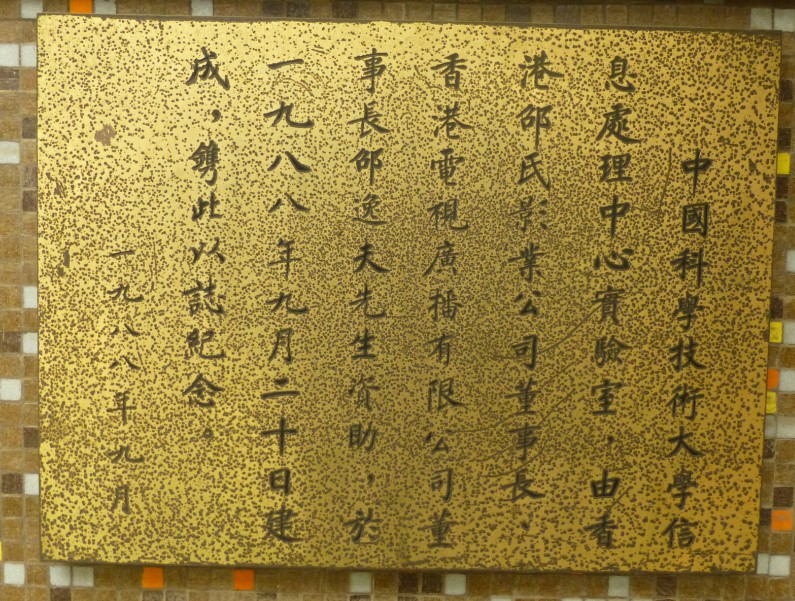 中國科學技術大學信
息處理中心實驗室，由香
港邵氏影業公司董事長、
香港電視廣播有限公司董
事長邵逸夫先生資助，於
一九八八年九月二十日建
成，鐫此以誌紀念。
一九八八年九月